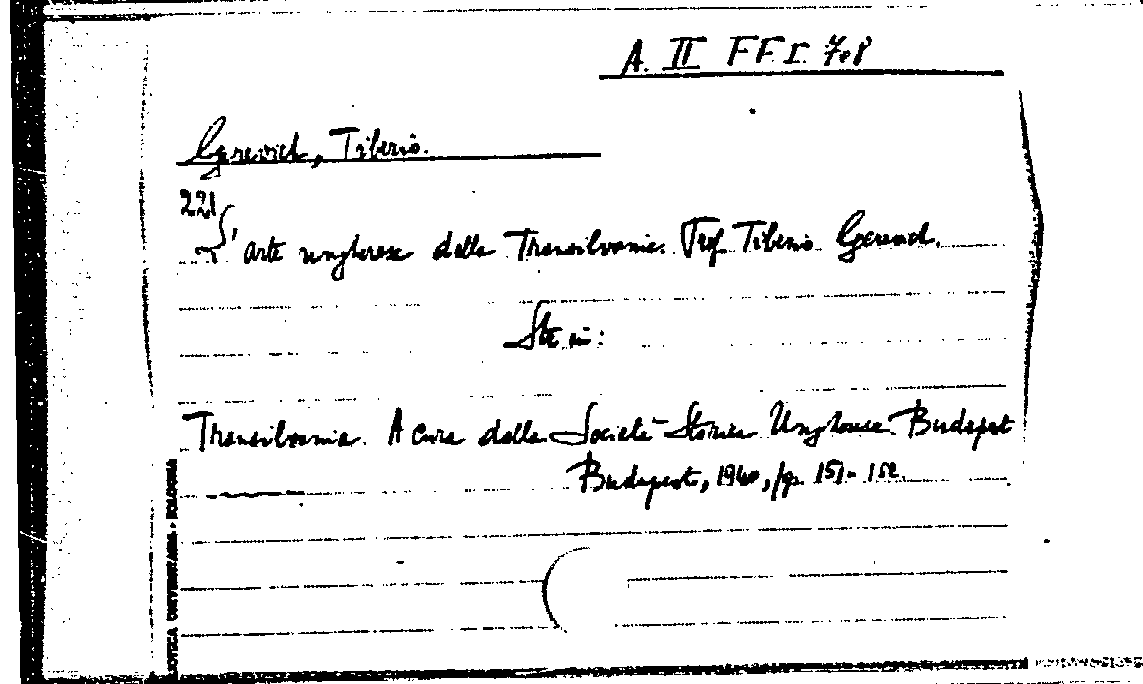 A. II F.F. I. 708
Gerevich, Tiberio.
221
L'arte ungherese della Transilvania. Prof. Tiberio Gerevich.
Sta in:
Transilvania. A cura della Società Storica Ungherese. Budapest
Budapest, 1940, pp. 151-152.
BIBLIOTECA UNIVERSITARIA - BOLOGNA